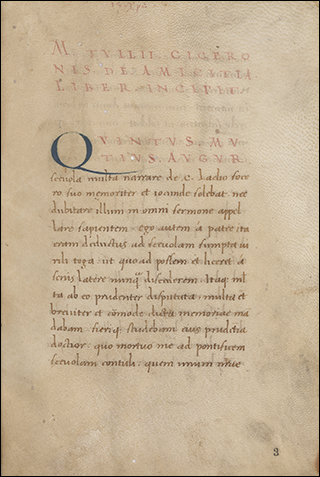 M. TVLLII CICERO
NIS DE AMICITIA
LIBER INCIPIT
QVINTVS. MV
TIVS. AVGVR
scevola multa narrare de C. Laelio soce
ro suo memoriter et iocunde solebat. nec
dubitare illum in omni sermone appel
lare sapientem. ego autem a patre ita
eram deductus ad scevolam sumpta ui
rili toga. ut quoad possem et liceret a
senis latere nunq̃ discederem. Itaq; ml
ta ab eo prudenter disputata. multa et
breviter et cõmode dicta memoriae ma
dabam. fieriq; studebam eius prudẽtia
doctior. quo mortuo me ad pontificem
scevolam contuli. quem unum nr̃ae
3